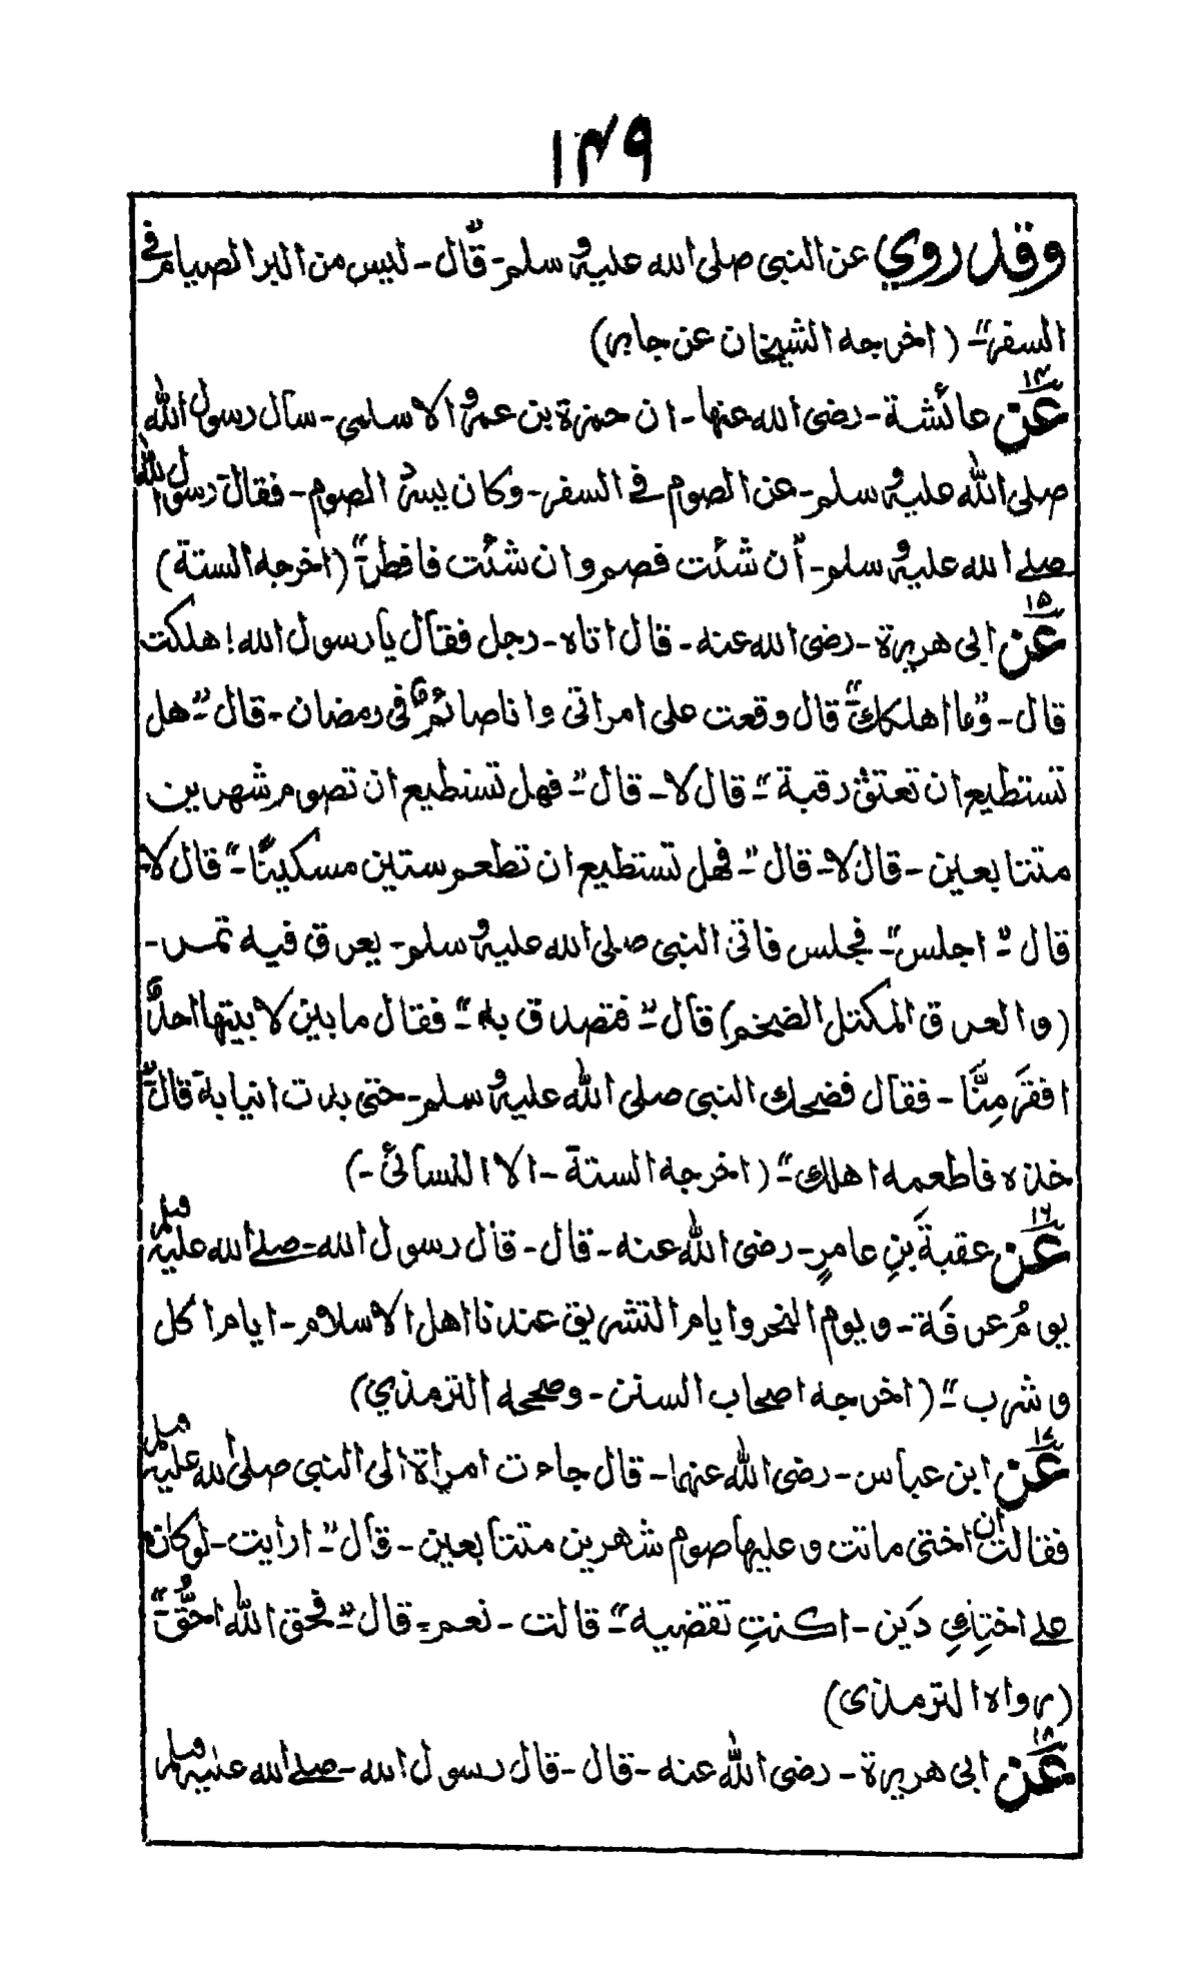 ۱۴۹
وقد روي عن النبی صلی الله علیه وسلم- قال- لیس من البر الصیام فی
السفر"- (اخرجه الشیخان عن جابر)
۱۴
عن عائشة- رضی الله عنها- ان حمزة بن عمرو الاسلمی- سأل رسول الله
صلی الله علیه وسلم- عن الصوم فی السفر- وکان یسرد الصوم- فقال رسول الله
صلے الله علیه وسلم- "أن شئت فصم وان شئت فافطر" (اخرجه الستة)
۱۵
عن ابی هریرة- رضی الله عنه- قال اتاه- رجل فقال یا رسول الله! هلکت
قال- "وما اهلکك" قال وقعت علی امراتی وانا صائمٌ فی رمضان- قال-" هل
تستطیع ان تعتق رقبة"- قال لا- قال-" فهل تستطیع ان تصوم شهرین
متتابعین- قال لا- قال-" فهل تستطیع ان تطعم ستین مسکینًا-" قال لا-
قال" اجلس"- فجلس فاتی النبی صلی الله علیه وسلم- بعرق فیه تمر-
(والعرق المکتل الضخم) قال-" فتصدق به"- فقال ما بین لابیتها احدٌ
افقرَ مِنَّا- فقال فضحك النبی صلی الله علیه وسلم- حتی بدت انیابه قال"
خذه فاطعمه اهلك"- (اخرجه الستة- الا النسائی-)
۱۶
عن عقبةَ بنِ عامرٍ- رضی الله عنه- قال- قال رسول الله- صلے الله علیه وسلم
یومُ عرفة- ویوم النحر وایام التشریق عندنا اهل الاسلام- ایام اکل
وشرب"- (اخرجه اصحاب السنن- وصححه الترمذي)
۱۷
عن ابن عباس- رضی الله عنهما- قال جاءت امراة الی النبی صلی الله علیه وسلم
فقالت ان اختی ماتت وعلیها صوم شهرین متتابعین- قال-" ارأیت- لو کان
علے اختِكِ دَین- اکنتِ تقضیه"- قالت- نعم- قال-" فحق الله احقُّ"
(رواه الترمذی)
۱۸
عن ابی هریرة- رضی الله عنه- قال- قال رسول الله- صلے الله علیه وسلم